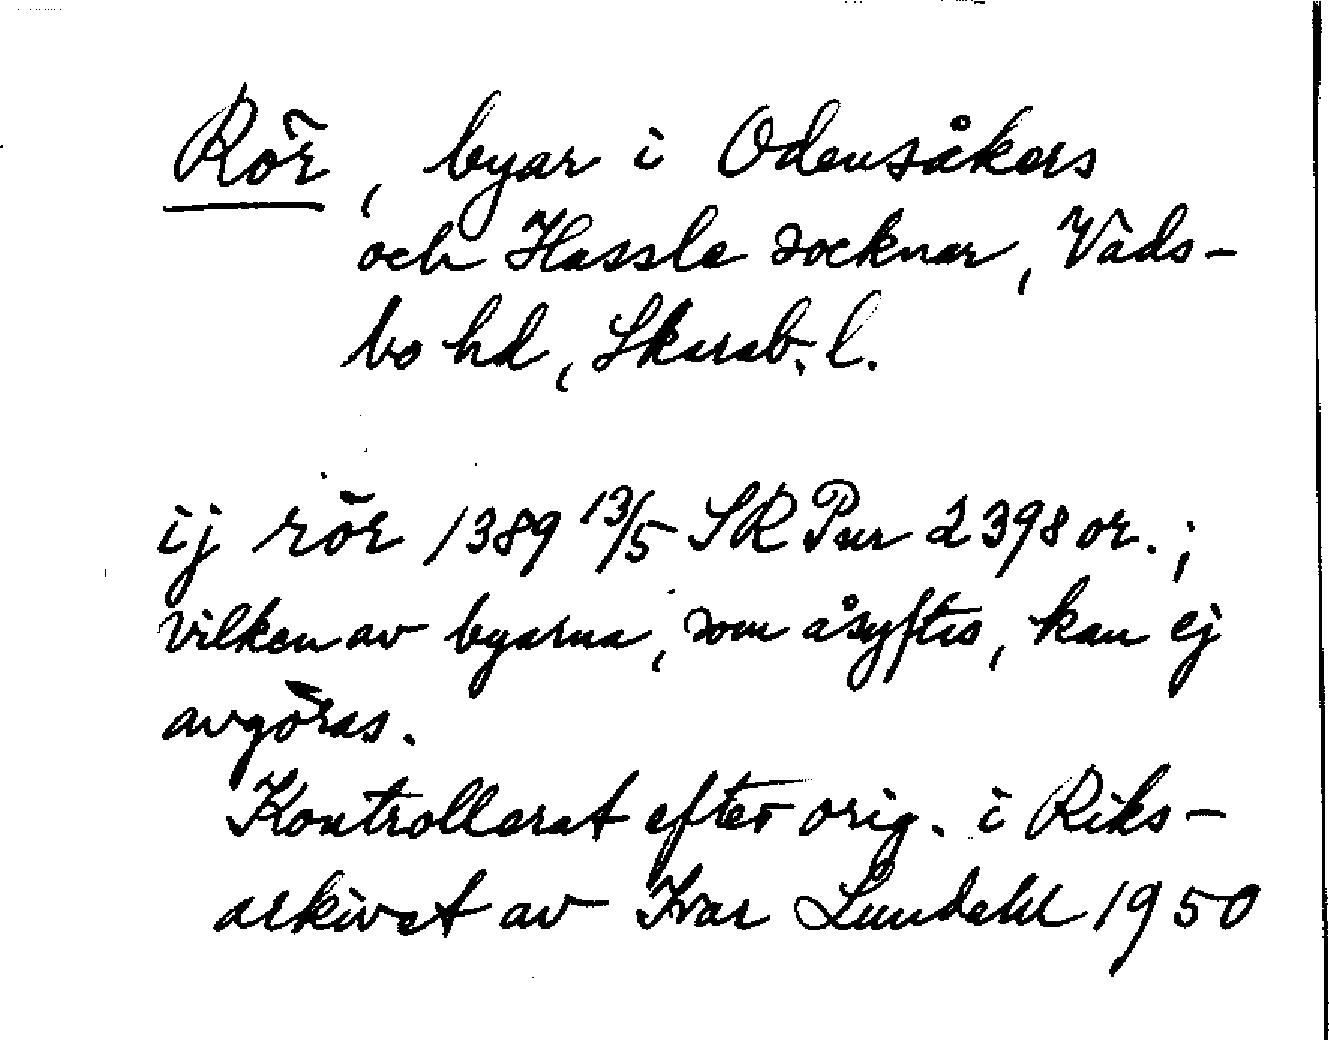 Rör, byar i Odensåkers
och Hassle socknar, Vads-
bo hd, Skarab. l.
ij rör 1389 13/5 SRPur 2398 or.;
vilken av byarna, som åsyftes, kan ej
avgöras.
Kontrollerat efter orig. i Riks-
arkivet av Ivar Lundahl 1950